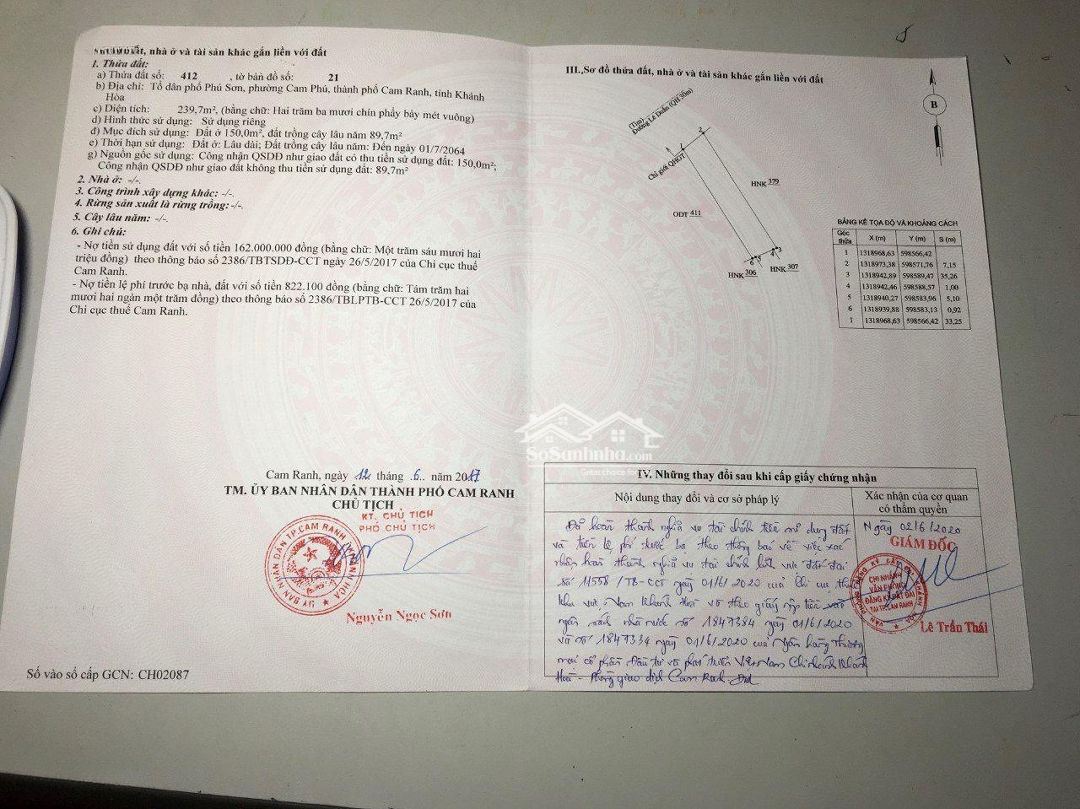 đất, nhà ở và tài sản khác gắn liền với đất
1. Thửa đất:
a) Thửa đất số: 412 , tờ bản đồ số: 21
b) Địa chỉ: Tổ dân phố Phú Sơn, phường Cam Phú, thành phố Cam Ranh, tỉnh Khánh
Hòa
c) Diện tích: 239,7m², (bằng chữ: Hai trăm ba mươi chín phẩy bảy mét vuông)
d) Hình thức sử dụng: Sử dụng riêng
đ) Mục đích sử dụng: Đất ở 150,0m², đất trồng cây lâu năm 89,7m²
e) Thời hạn sử dụng: Đất ở: Lâu dài; Đất trồng cây lâu năm: Đến ngày 01/7/2064
g) Nguồn gốc sử dụng: Công nhận QSDĐ như giao đất có thu tiền sử dụng đất: 150,0m²;
Công nhận QSDĐ như giao đất không thu tiền sử dụng đất: 89,7m²
2. Nhà ở: -/-.
3. Công trình xây dựng khác: -/-.
4. Rừng sản xuất là rừng trồng: -/-.
5. Cây lâu năm: -/-.
6. Ghi chú:
- Nợ tiền sử dụng đất với số tiền 162.000.000 đồng (bằng chữ: Một trăm sáu mươi hai
triệu đồng) theo thông báo số 2386/TBTSDĐ-CCT ngày 26/5/2017 của Chi cục thuế
Cam Ranh.
- Nợ tiền lệ phí trước bạ nhà, đất với số tiền 822.100 đồng (bằng chữ: Tám trăm hai
mươi hai ngàn một trăm đồng) theo thông báo số 2386/TBLPTB-CCT 26/5/2017 của
Chi cục thuế Cam Ranh.
Cam Ranh, ngày 12 tháng 6 năm 2017
TM. ỦY BAN NHÂN DÂN THÀNH PHỐ CAM RANH
CHỦ TỊCH
KT. CHỦ TỊCH
PHÓ CHỦ TỊCH
ỦY BAN NHÂN DÂN TP.CAM RANH
Nguyễn Ngọc Sơn
Số vào sổ cấp GCN: CH02087
III. Sơ đồ thửa đất, nhà ở và tài sản khác gắn liền với đất
B
(Tim)
Đường Lê Duẩn (QH 30m)
Chỉ giới QHGT
1
2
HNK 379
ODT 411
6 5 4 3
HNK 306
HNK 307
BẢNG KÊ TỌA ĐỘ VÀ KHOẢNG CÁCH
Góc thửa X (m) Y (m) S (m)
1 1318968,63 598566,42
2 1318973,38 598571,76 7,15
3 1318942,89 598589,47 35,26
4 1318942,46 598588,57 1,00
5 1318940,27 598583,96 5,10
6 1318939,88 598583,13 0,92
1 1318968,63 598566,42 33,25
SoSanhnha.com
IV. Những thay đổi sau khi cấp giấy chứng nhận
Nội dung thay đổi và cơ sở pháp lý
Xác nhận của cơ quan
có thẩm quyền
Đã hoàn thành nghĩa vụ tài chính tiền sử dụng đất
và tiền lệ phí trước bạ theo thông báo về việc xác
nhận hoàn thành nghĩa vụ tài chính lĩnh vực đất đai
số 11558/TB-CCT ngày 01/6/2020 của Chi cục thuế
khu vực Nam Khánh Hòa và theo giấy nộp tiền vào
ngân sách nhà nước số 1849384 ngày 01/6/2020
và số 1849334 ngày 01/6/2020 của Ngân hàng thương
mại cổ phần Đầu tư và phát triển Việt Nam Chi nhánh Khánh
Hòa - Phòng giao dịch Cam Ranh.
Ngày 02/6/2020
GIÁM ĐỐC
CHI NHÁNH
VĂN PHÒNG
ĐĂNG KÝ ĐẤT ĐAI
TẠI TP.CAM RANH
Lê Trần Thái